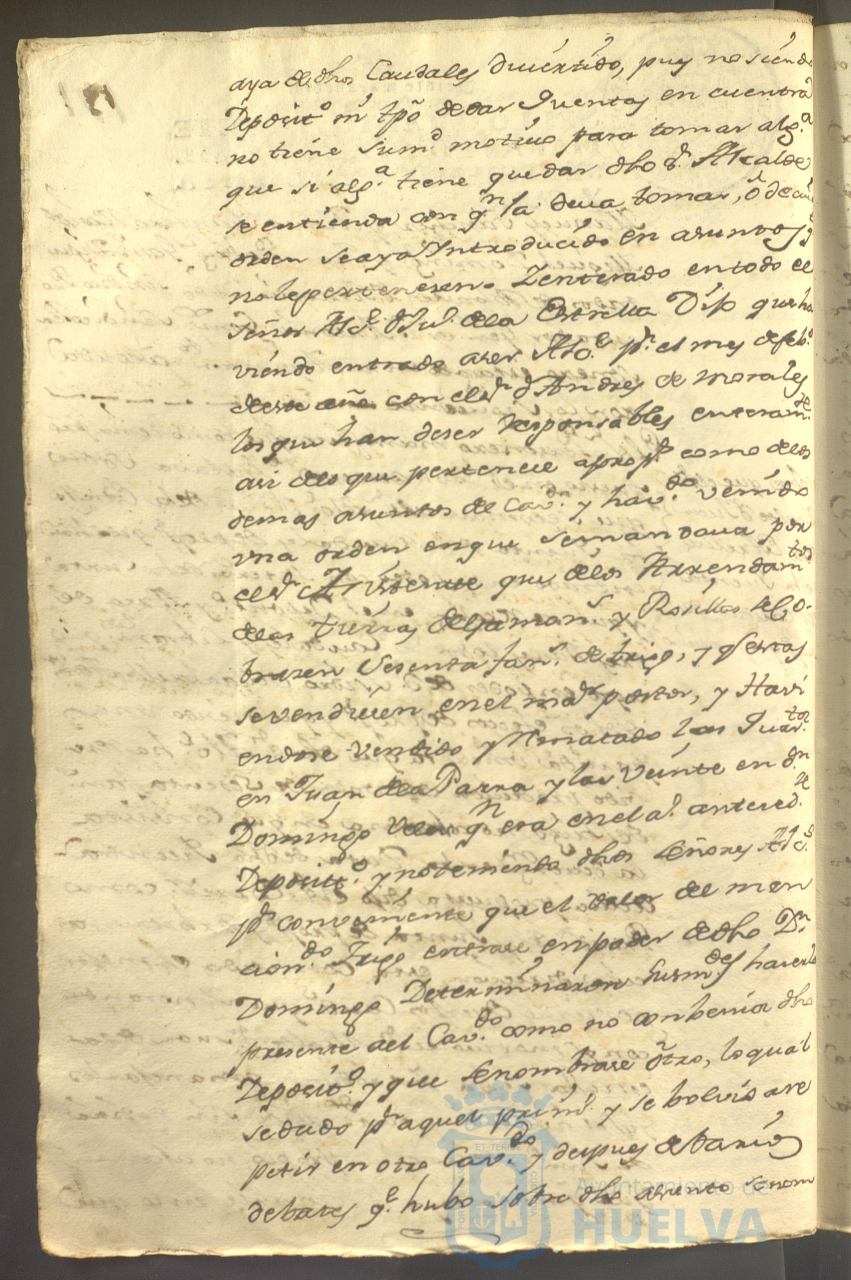 aya de dhos Caudales divertido, pues no siendo
Deposit.º ni tpõ de dar Quentas en cuentra
no tiene sumd motivo para tomar alg.ª
que si alg.ª tiene que dar dho Sr Alcalde
se entienda con qn la deva tomar, ô de cuio
orden se aya Yntroducido en asuntos q
no le pertenesen. Y enterado en todo el
Señor Alce de la Estrella Dijo que ha
viendo entrado a ser Alce pr el mes de feb.º
de este año con el Sr Dn Andres de Morales
los que han de ser responsables enteramte
asi de lo que pertenece a prop.s como de los
demas asuntos de Cavdo y havdo venido
una orden en que se mandava por
el Sr que de los Arrendamtos
de las tierras de y Rosillos se Co-
brasen Sesenta fans de trigo, y q estas
se vendiesen en el mair postor, y Havi
endose vendido y Rematado las Quarta
en Juan de la Parra y las veinte en dn
Domingo qn era en el al anteced.te
Deposit.º y no teniendo dhos Señores Alces
pr conveniente que el valor del men
cion.do Trigo entrase en poder de dho Dn
Domingo Determinaron Sus mrdes hacerlo
presente al Cav.do como no conbenia dho
Deposit.º y que se nombrase otro, lo qual
se dudo pr aquel prim.º y se bolvio a re
petir en otro Cav.do y despues de barios
debates qe hubo sobre dho asunto se nom
ET TERRÆ
Ayuntamiento de
HUELVA